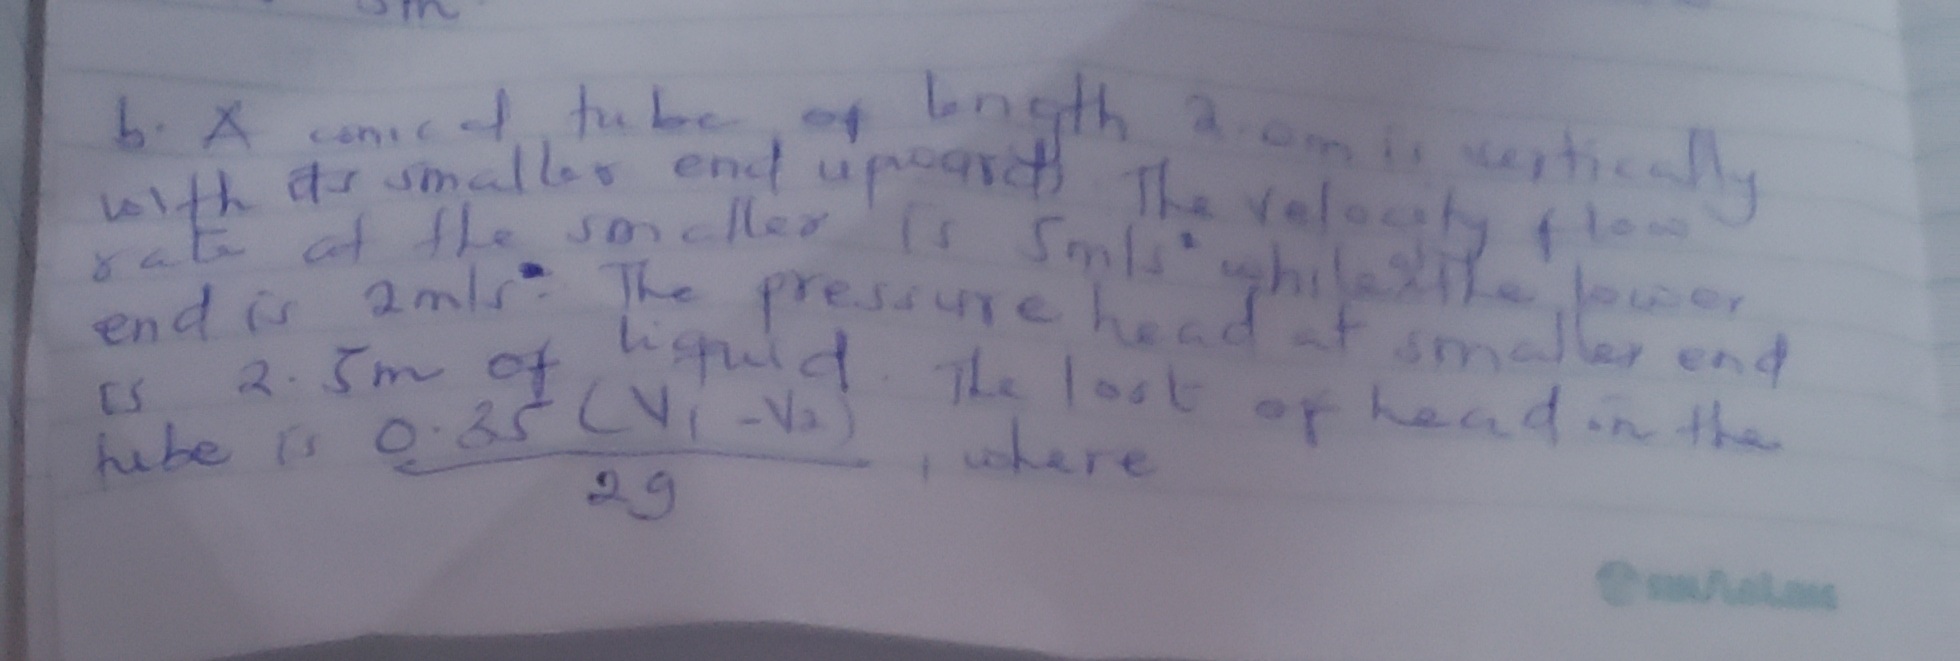 5m
b. A conical tube of length 2.0m is vertically
with its smaller end upwards. The velocity flow
rate at the smaller is 5m/s while the lower
end is 2m/s. The pressure head at smaller end
is 2.5m of liquid. The lost of head in the
tube is 0.35 (V1 - V2) / 2g , where